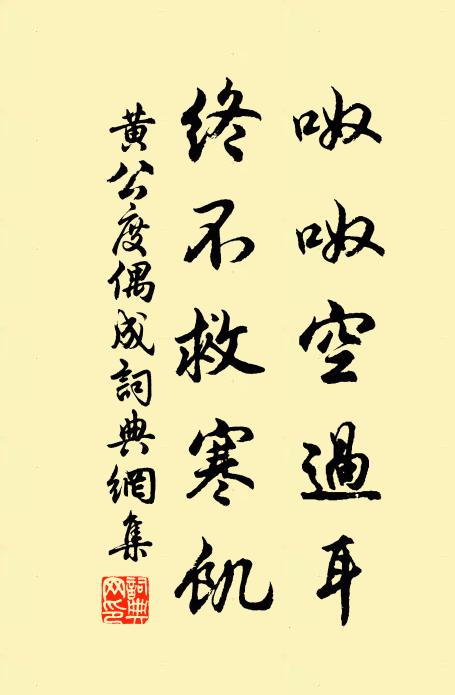 呶呶空過耳
終不救寒飢
黃公度偶成詞典網集
詞典網印